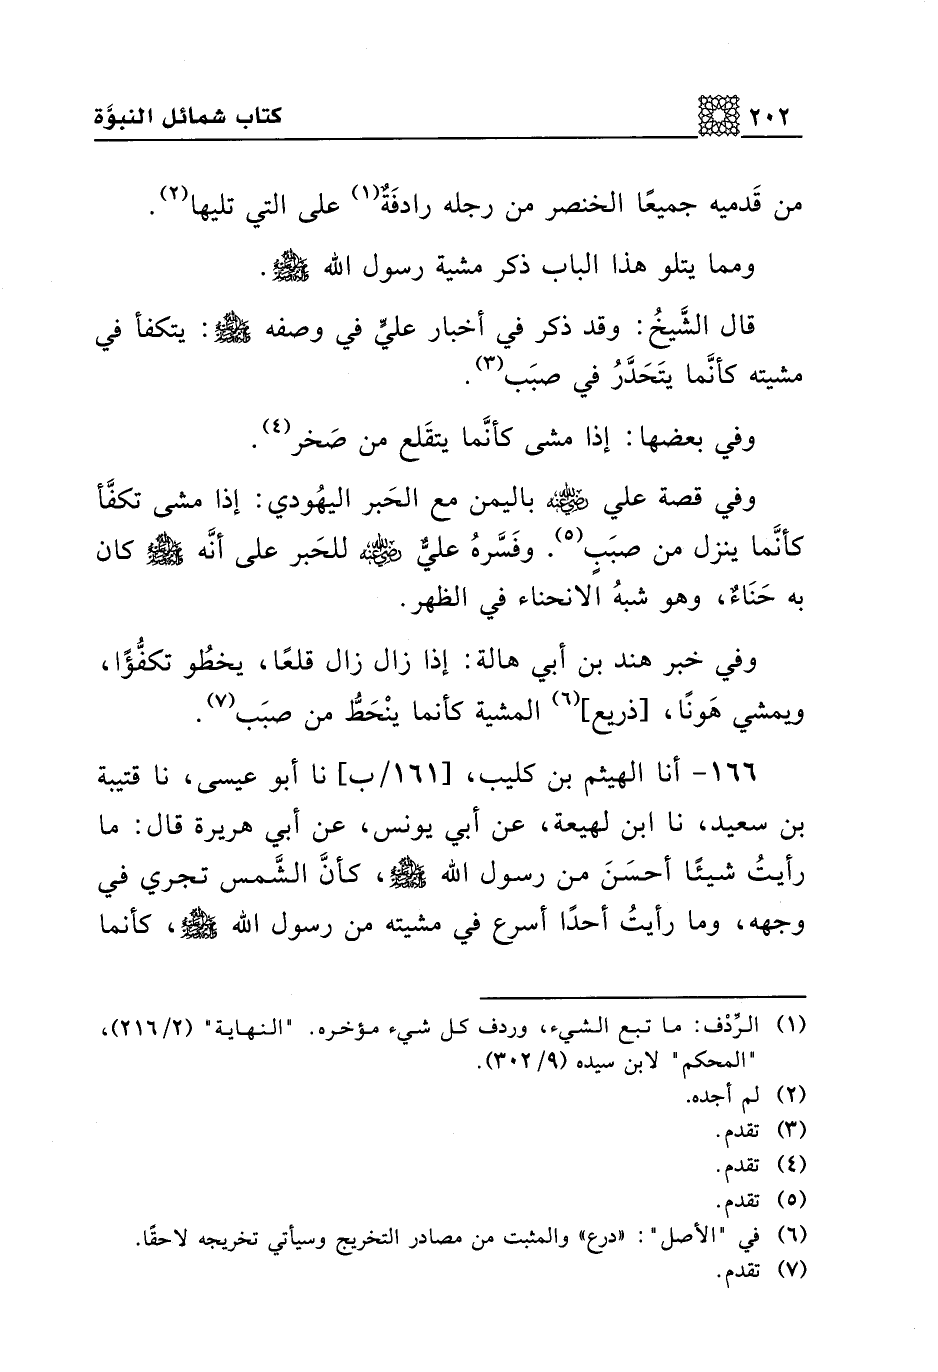 ٢٠٢ كتاب شمائل النبوَّة
من قَدميه جميعًا الخنصر من رجله رادفَةٌ(١) على التي تليها(٢).
ومما يتلو هذا الباب ذكر مشية رسول الله ﷺ.
قال الشَّيخُ: وقد ذكر في أخبار عليٍّ في وصفه ﷺ: يتكفأ في
مشيته كأنَّما يتَحَدَّرُ في صبَب(٣).
وفي بعضها: إذا مشى كأنَّما يتقَلع من صَخر(٤).
وفي قصة علي رضي الله عنه باليمن مع الحَبر اليهُودي: إذا مشى تكفَّأ
كأنَّما ينزل من صبَبٍ(٥). وفَسَّرهُ عليٌّ رضي الله عنه للحَبر على أنَّه ﷺ كان
به حَنَاءٌ، وهو شبهُ الانحناء في الظهر.
وفي خبر هند بن أبي هالة: إذا زال زال قلعًا، يخطُو تكفُّؤًا،
ويمشي هَونًا، [ذريع](٦) المشية كأنما ينْحَطُّ من صبَب(٧).
١٦٦- أنا الهيثم بن كليب، [١٦١/ب] نا أبو عيسى، نا قتيبة
بن سعيد، نا ابن لهيعة، عن أبي يونس، عن أبي هريرة قال: ما
رأيتُ شيئًا أحسَنَ من رسول الله ﷺ، كأنَّ الشَّمس تجري في
وجهه، وما رأيتُ أحدًا أسرع في مشيته من رسول الله ﷺ، كأنما
(١) الرِّدْف: ما تبع الشيء، وردف كل شيء مؤخره. "النهاية" (٢١٦/٢)،
"المحكم" لابن سيده (٣٠٢/٩).
(٢) لم أجده.
(٣) تقدم.
(٤) تقدم.
(٥) تقدم.
(٦) في "الأصل": «درع» والمثبت من مصادر التخريج وسيأتي تخريجه لاحقًا.
(٧) تقدم.